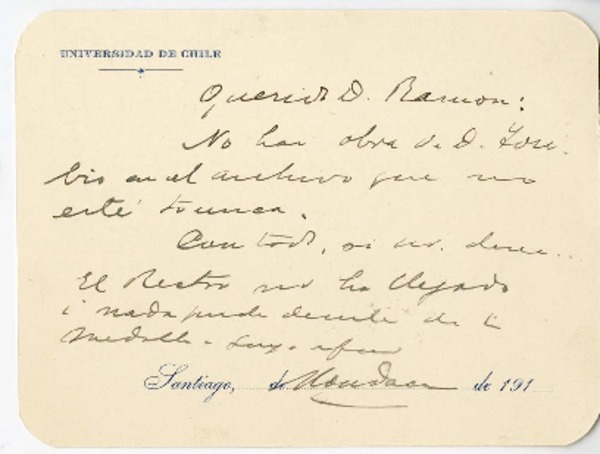 UNIVERSIDAD DE CHILE
Querido D. Ramon:
No hai obra de D. Tori-
bio en el archivo que no
esté trunca.
Con todo, si ud. desea...
El Rector no ha llegado
i nada puede decirle de la
medalla.
Santiago, de de 191